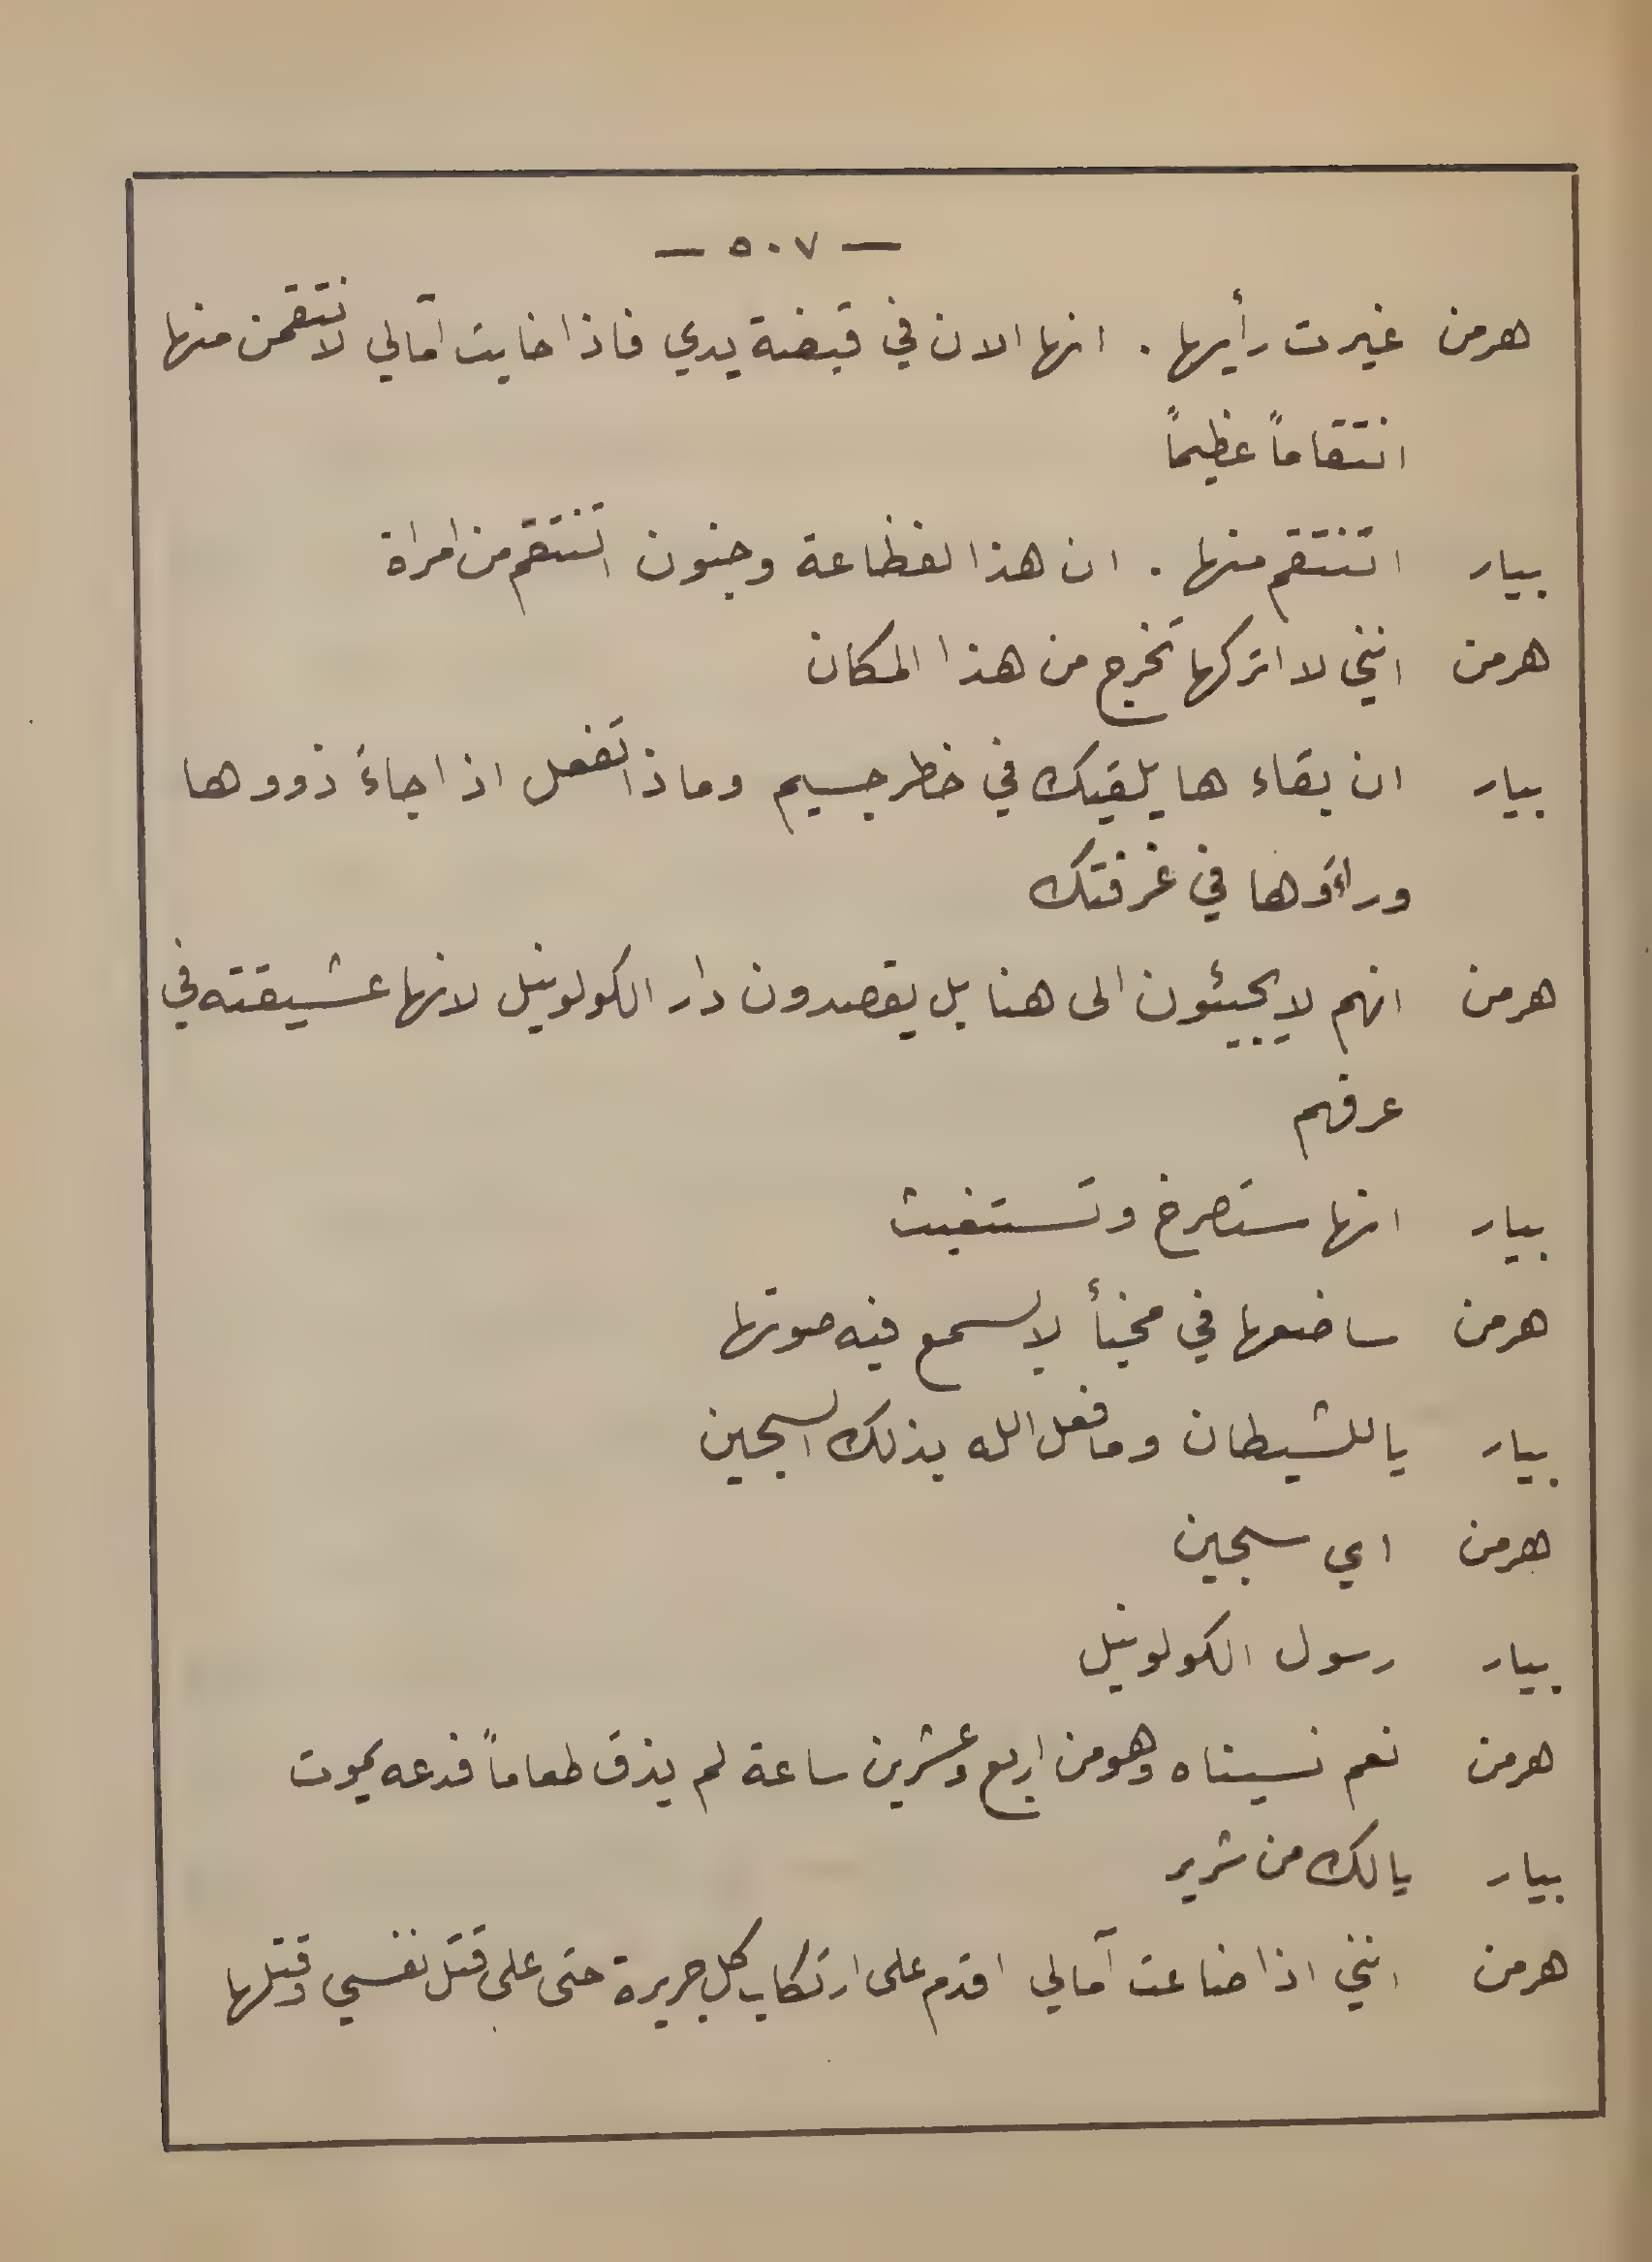 — ٥٠٧ —
هرمن غيرت رأيها . انها الان في قبضة يدي فاذا خابت آمالي لانتقمن منها
انتقاماً عظيماً
بيار اتنتقم منها . ان هذا لفظاعة وجنون اتنتقم من امراة
هرمن انني لا اتركها تخرج من هذا المكان
بيار ان بقاء ها يلقيك في خطر جسيم وماذا تفعل اذا جاءَ ذووها
وراءَوها في غرفتك
هرمن انهم لا يجيئون الى هنا بل يقصدون دار الكولونيل لانها عشيقته في
عرفهم
بيار انها ستصرخ وتستغيث
هرمن ساضعها في مخبأ لا يسمع فيه صوتها
بيار يا للشيطان وما فعل الله بذلك السجين
هرمن اي سجين
بيار رسول الكولونيل
هرمن نعم نسيناه وهو من اربع وعشرين ساعة لم يذق طعاماً فدعه يموت
بيار يا لك من شرير
هرمن انني اذا ضاعت آمالي اقدم على ارتكاب كل جريرة حتى على قتل نفسي وقتلها